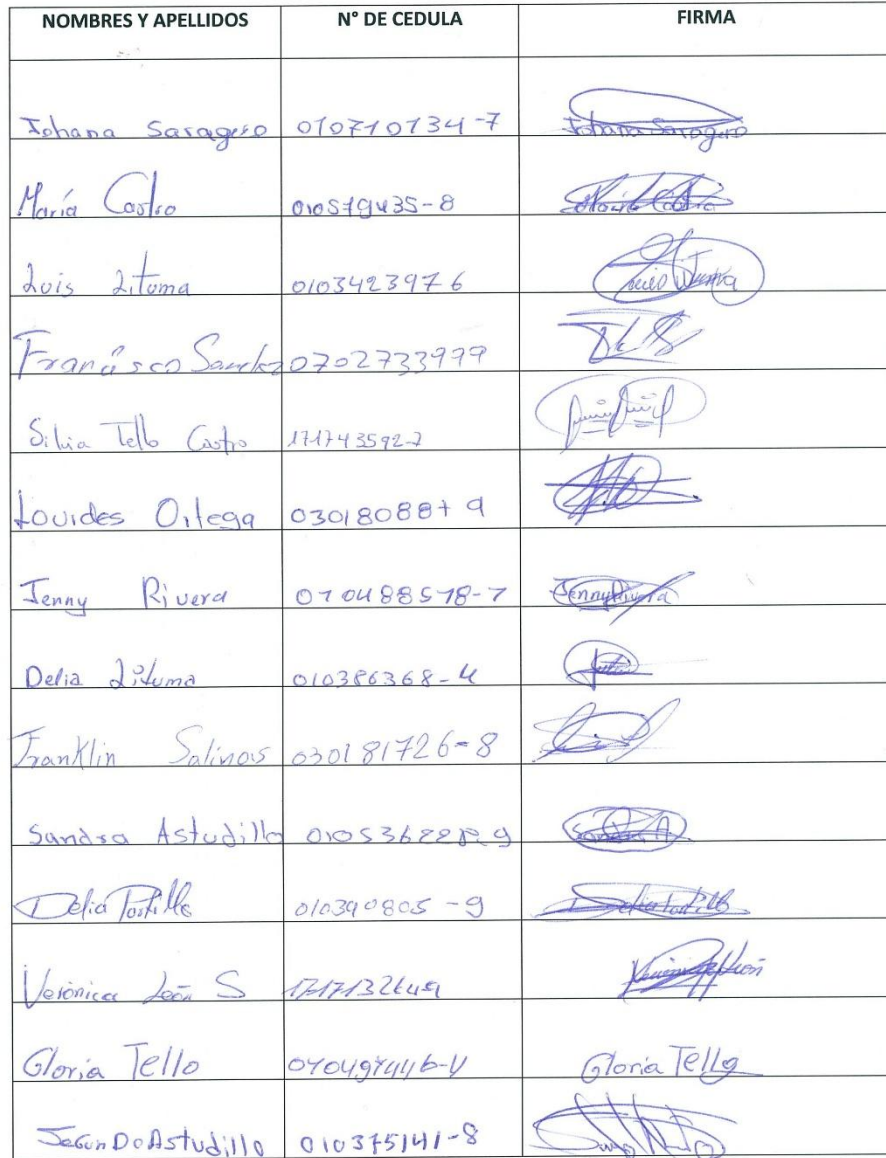 NOMBRES Y APELLIDOS N° DE CEDULA FIRMA
Johana Saraguro 010710134-7 Johana Saraguro
María Castro 010579435-8 María Castro
Luis Lituma 0103423976 Luis Lituma
Francisco Sanchz 0702733979
Silvia Tello Castro 171743592-7
Lourdes Ortega 0301808879
Jenny Rivera 010488578-7 Jenny Rivera
Delia Lituma 010386368-4
Franklin Salinas 030181726-8
Sandra Astudillo Sandra A
Delia Portillo 010390805-9 Delia Portillo
Verónica León S Verónica León
Gloria Tello Gloria Tello
SegunDo Astudillo 010375141-8